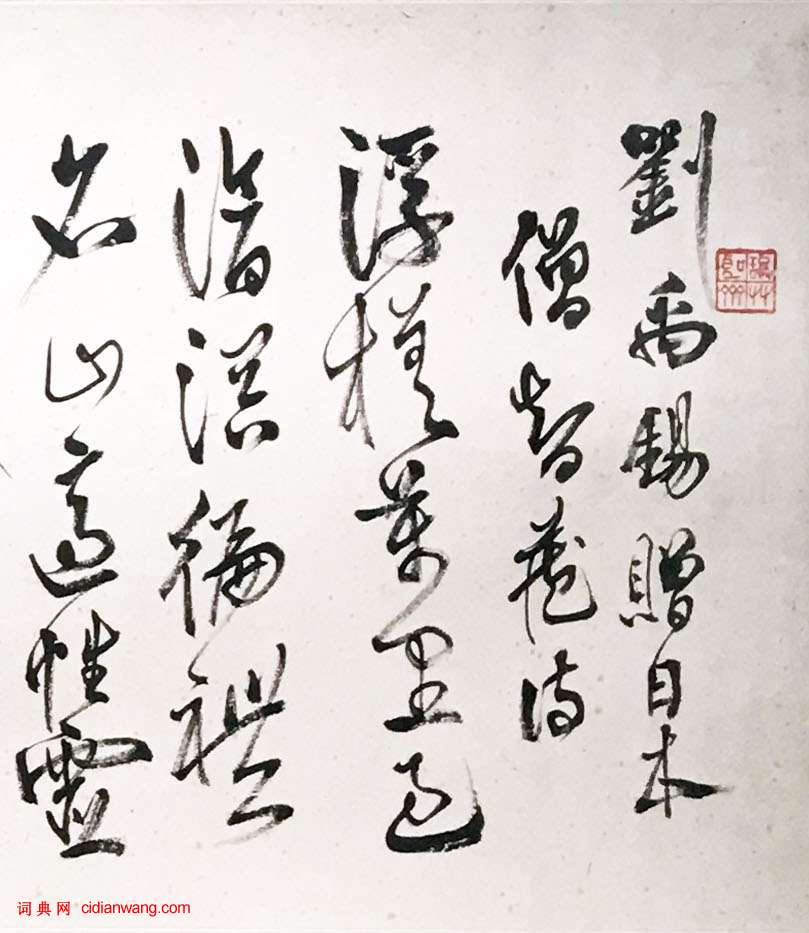 劉禹錫贈日本
僧智藏詩
浮槎萬里過
滄溟徧禮
名山適性靈
词典网 cidianwang.com